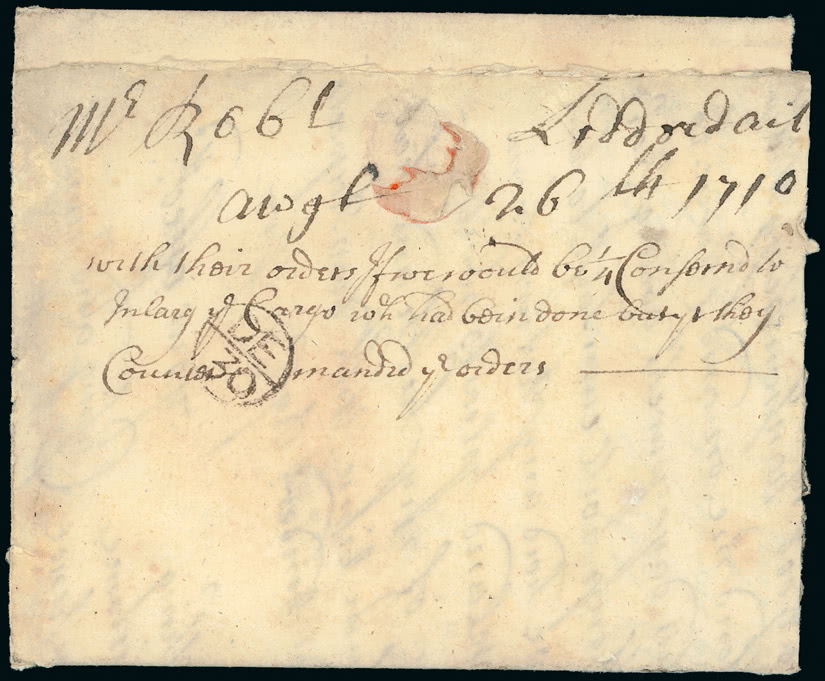 Mr Robt Letter dait
Awgt 26th 1710
with their orders If we would be 1/4 Consernd to
Inlarg ye Cargo wh had bein done but yt they
Counter manded ye orders
SE
30